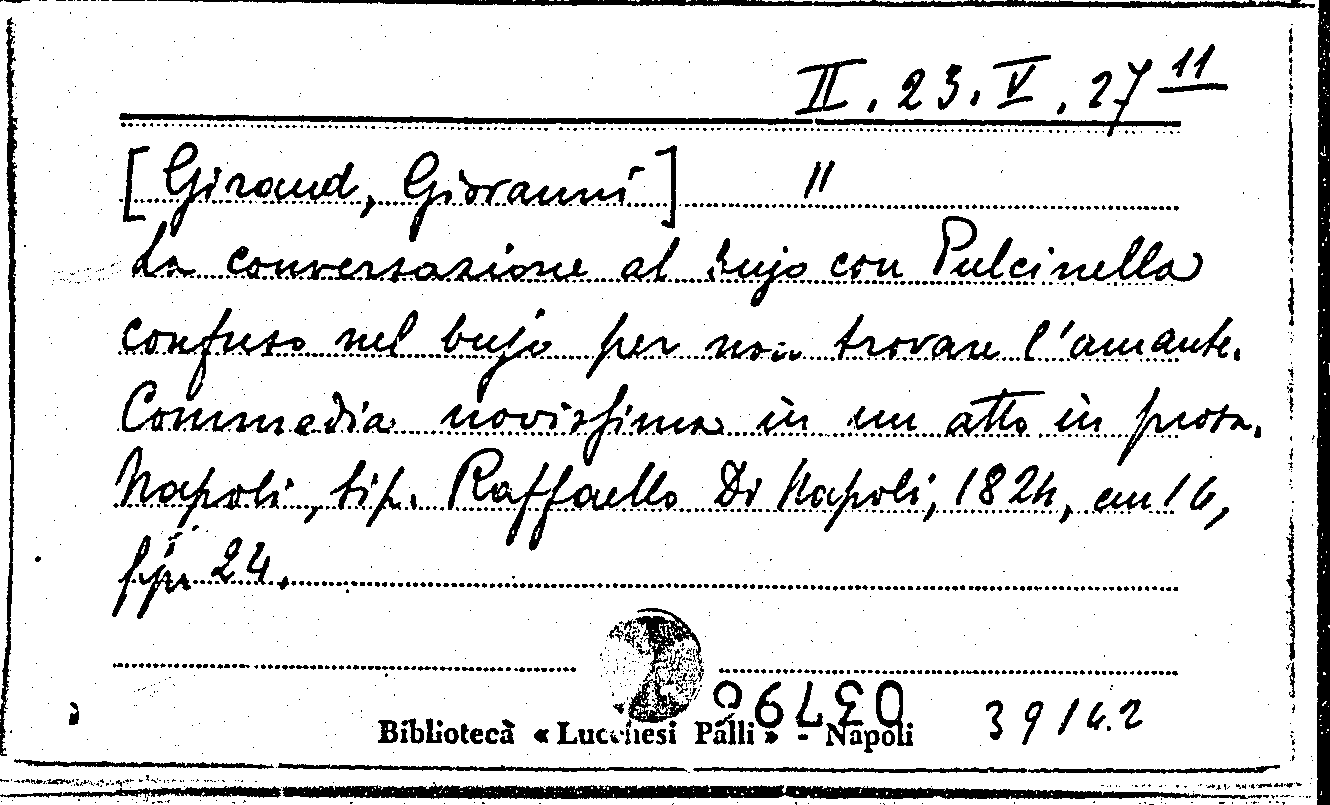 II. 23. V. 27 11
[Giraud, Giovanni] 11
La conversazione al bujo con Pulcinella
confuso nel bujo per non trovare l'amante.
Commedia novissima in un atto in prosa.
Napoli, tip. Raffaello Di Napoli, 1824, cm 16,
pp. 24.
Biblioteca « Lucchesi Palli » - Napoli